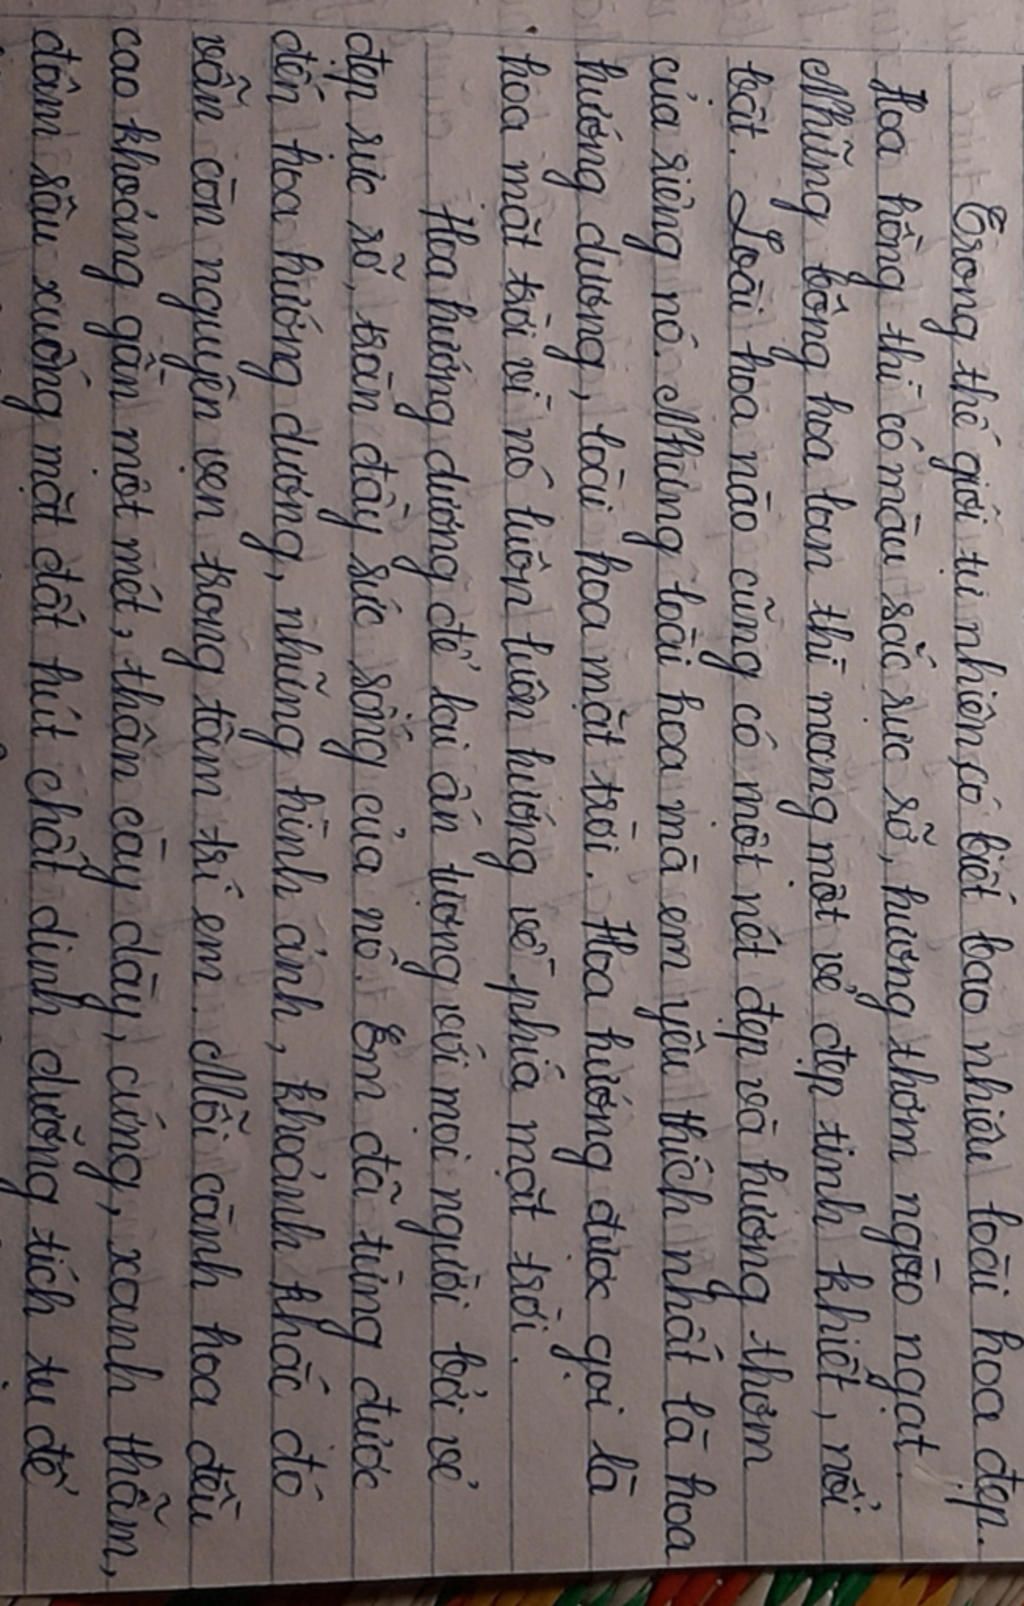 Trong thế giới tự nhiên, có biết bao nhiêu loài hoa đẹp.
Hoa hồng thì có màu sắc rực rỡ, hương thơm ngào ngạt.
Những bông hoa lan thì mang một vẻ đẹp tinh khiết, nổi
bật. Loài hoa nào cũng có một nét đẹp và hương thơm
của riêng nó. Nhưng loài hoa mà em yêu thích nhất là hoa
hướng dương, loài hoa mặt trời. Hoa hướng dươc gọi là
hoa mặt trời vì nó luôn luôn hướng về phía mặt trời.
Hoa hướng dương để lại ấn tượng với mọi người bởi vẻ
đẹp rực rỡ, tràn đầy sức sống của nó. Em đã từng được
đến hoa hướng dương, những hình ảnh, khoảnh khắc đó
vẫn còn nguyên vẹn trong tâm trí em. Mỗi cành hoa đều
cao khoảng gần một mét, thân cây dày, cứng, xanh thẫm,
đâm sâu xuống mặt đất hút chất dinh dưỡng tích tụ để